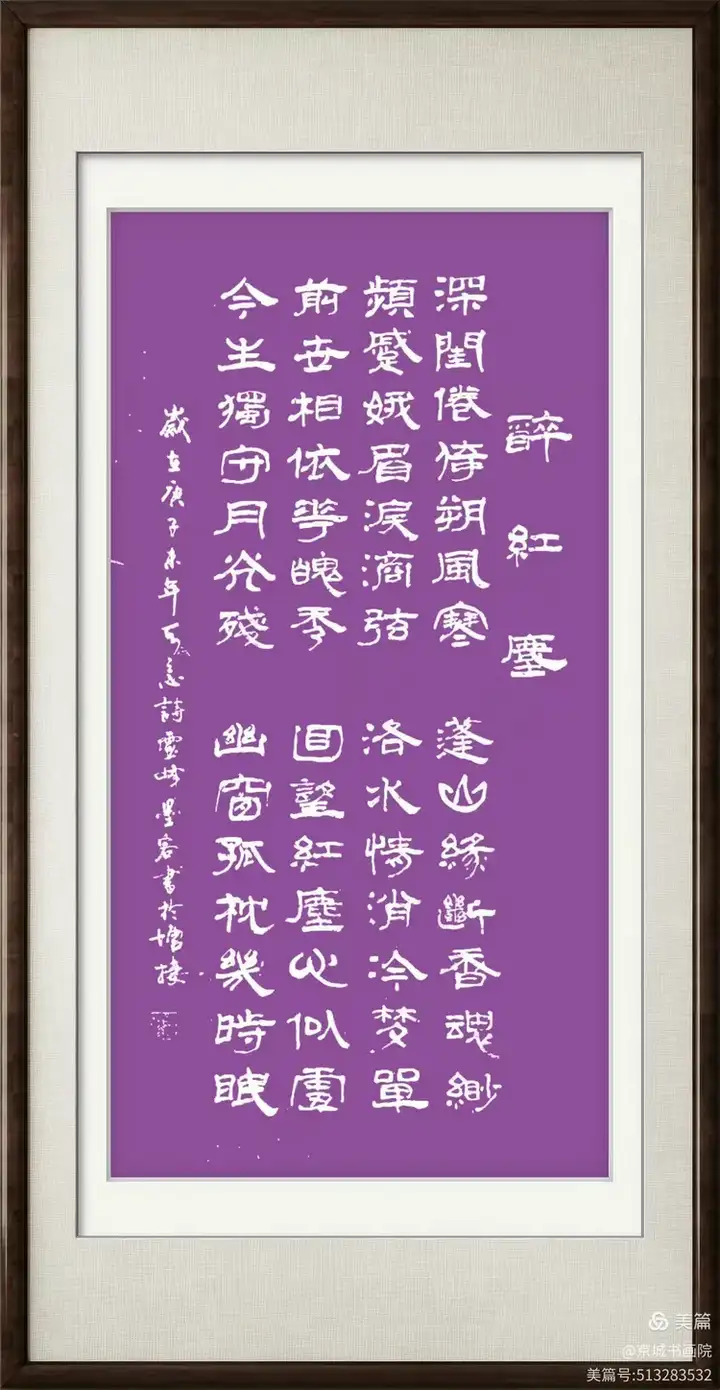 醉紅塵
深閨倦倚朔風寒　蓬山緣斷香魂緲
頻蹙娥眉淚滴弦　洛水情消冷梦單
前世相依花魄秀　回望紅塵心似虛
今生獨守月光殘　幽窗孤枕幾時眠
歲在庚子末年意詩靈峰墨客書於塘棲
美篇
@京城书画院
美篇号:513283532